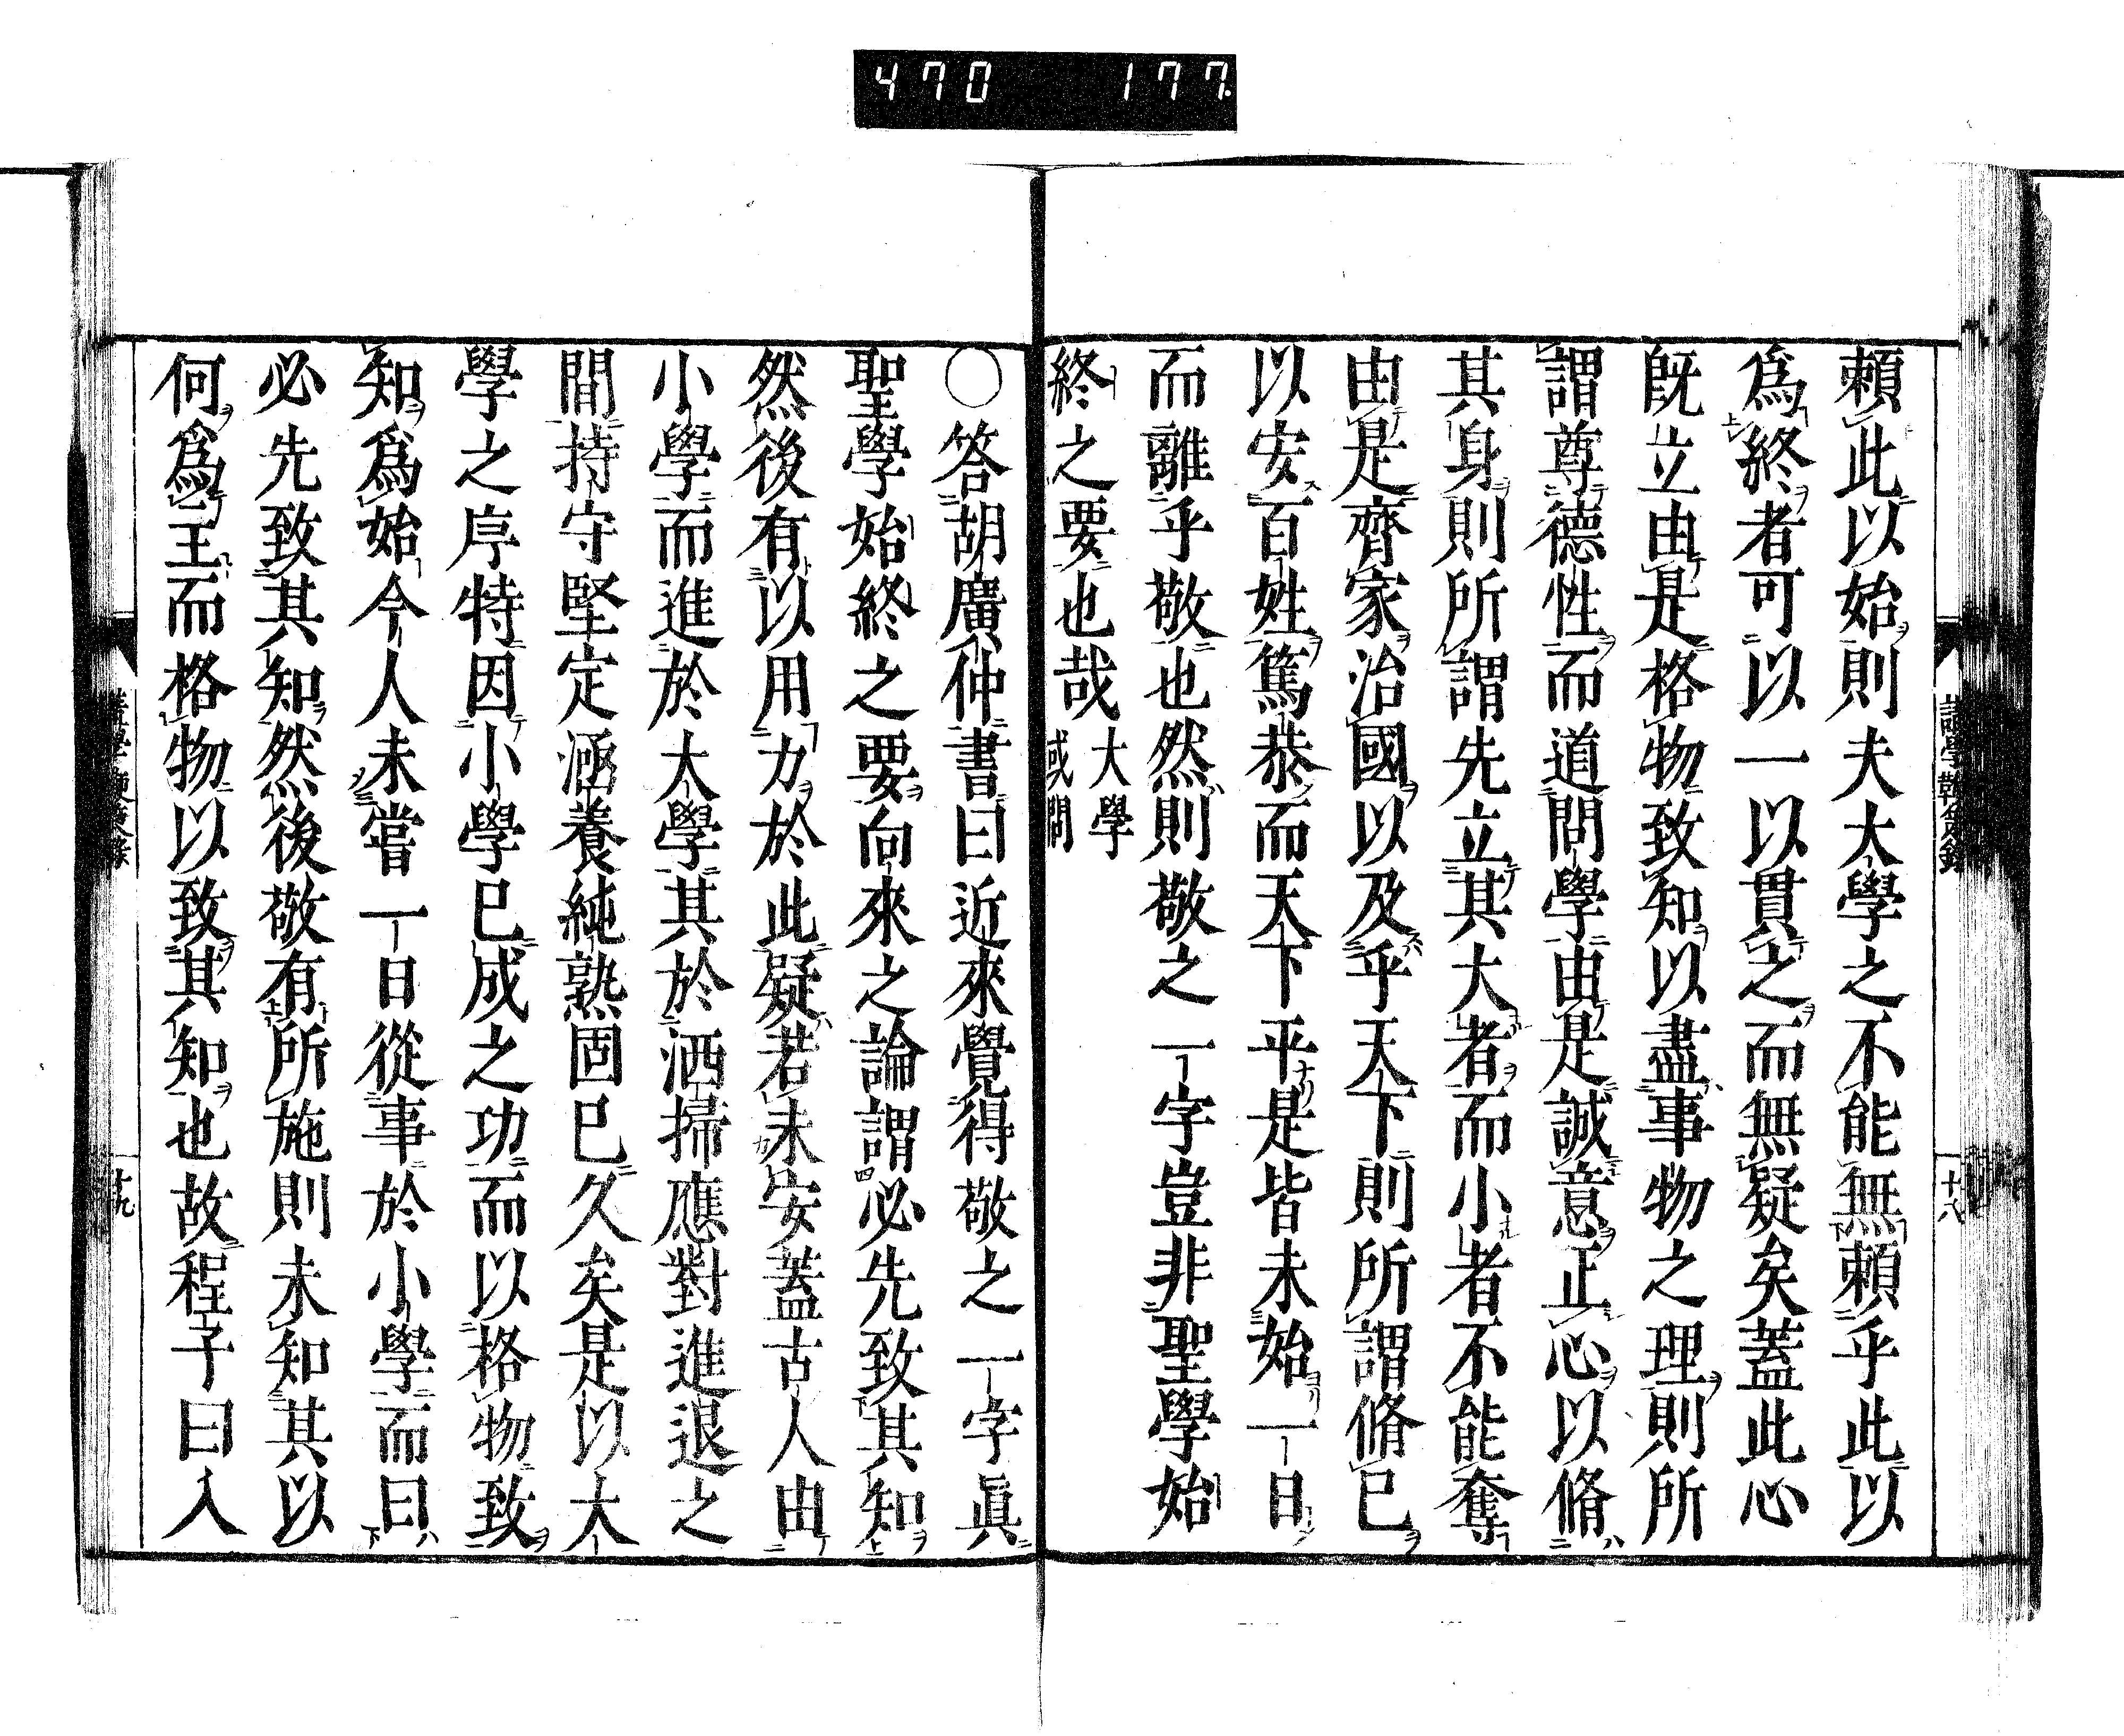 470 177
賴此以始則夫大學之不能無賴乎此以
爲終者可以一以貫之而無疑矣蓋此心
旣立由是格物致知以盡事物之理則所
謂尊德性而道問學由是誠意正心以脩
其身則所謂先立其大者而小者不能奪
由是齊家治國以及乎天下則所謂脩已
以安百姓篤恭而天下平是皆未始一日
而離乎敬也然則敬之一字豈非聖學始
終之要也哉
大學
或問
十八
〇答胡廣仲書曰近來覺得敬之一字眞
聖學始終之要向來之論謂必先致其知
然後有以用力於此疑若未安蓋古人由
小學而進於大學其於洒掃應對進退之
間持守堅定涵養純熟固已久矣是以大
學之序特因小學已成之功而以格物致
知爲始今人未嘗一日從事於小學而曰
必先致其知然後敬有所施則未知其以
何爲主而格物以致其知也故程子曰入
十九